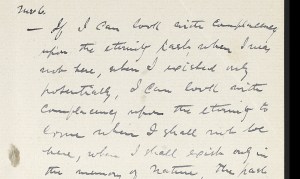 — If I can look with complacency
upon the eternity past, when I was
not here, when I existed only
potentially, I can look with
complacency upon the eternity to
come when I shall not be
here, when I shall exist only in
the memory of nature. The past